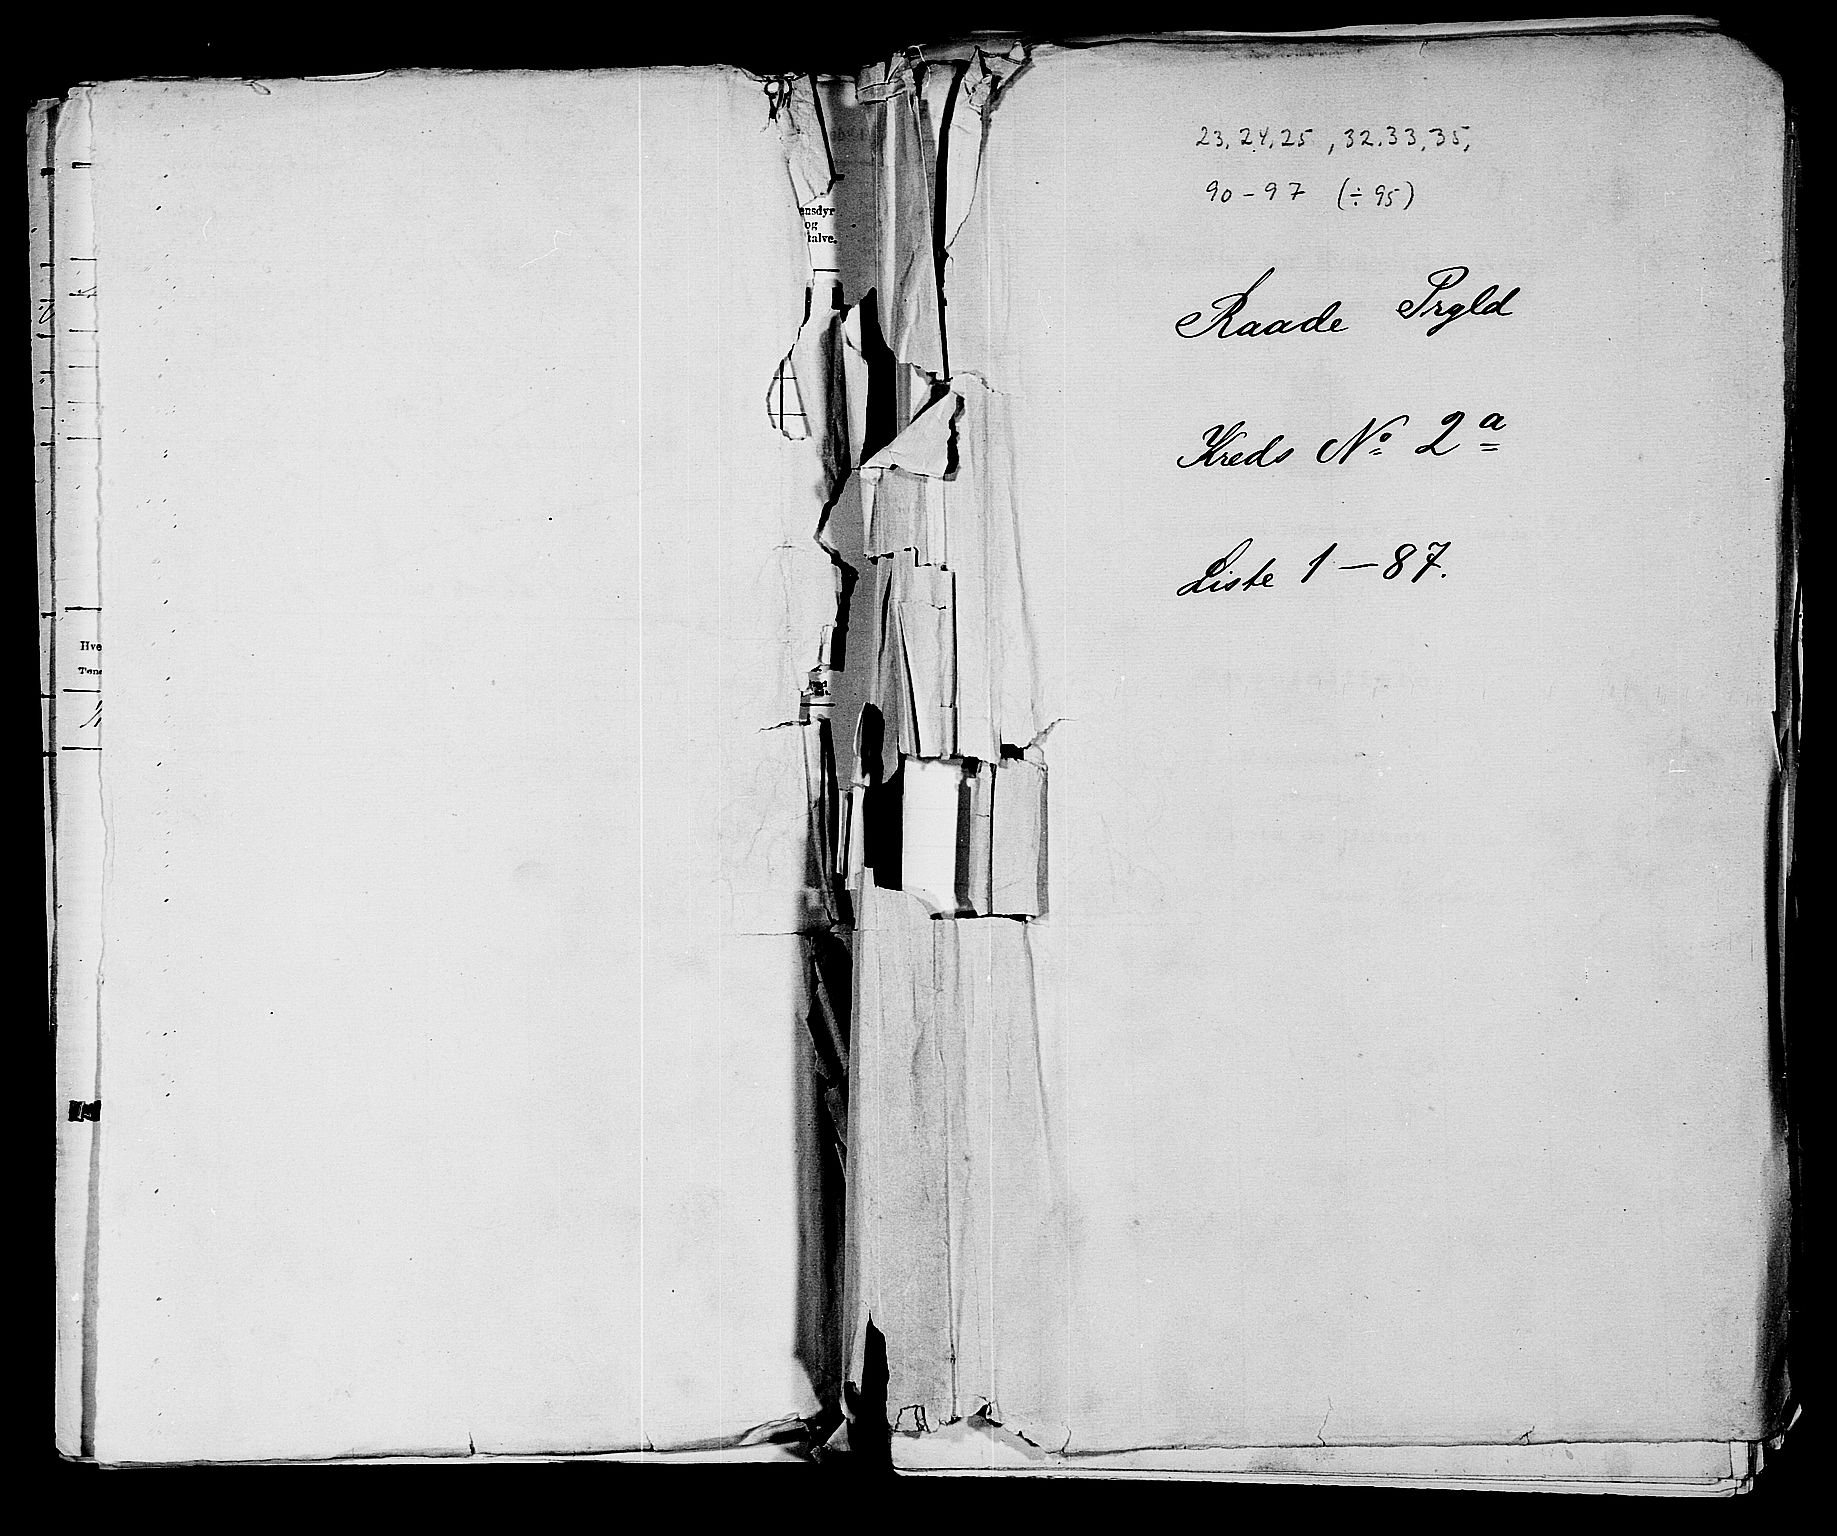 Hve
ensdyr
og
kalve.
23, 24, 25, 32, 33, 35,
90 - 97 (÷ 95)
Raade Prgld
Kreds No 2 a
Liste 1 — 87.